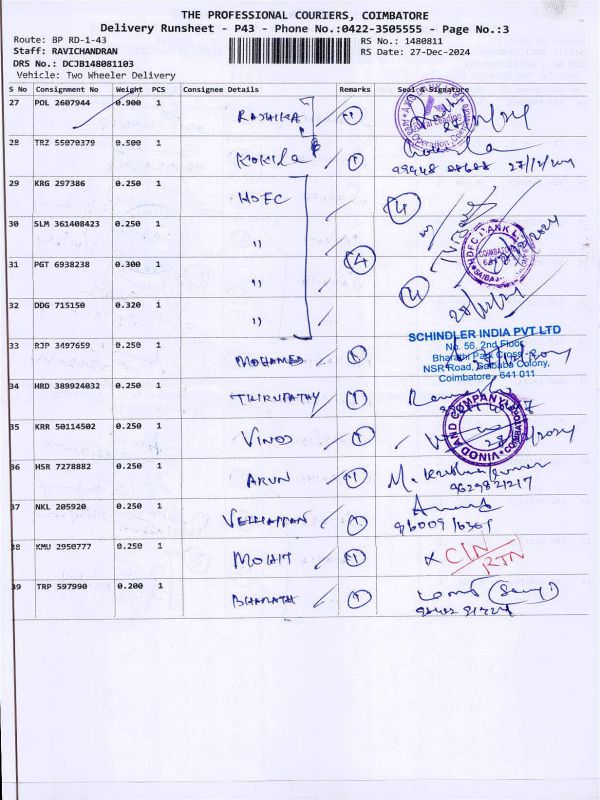 THE PROFESSIONAL COURIERS, COIMBATORE
Delivery Runsheet - P43 - Phone No.:0422-3505555 - Page No.:3
Route: BP RD-1-43 RS No.: 1480811
Staff: RAVICHANDRAN RS Date: 27-Dec-2024
DRS No.: DCJB148081103
Vehicle: Two Wheeler Delivery
S No Consignment No Weight PCS Consignee Details Remarks Seal & Signature
27 POL 2607944 0.900 1 RADHIKA 1
28 TRZ 55070379 0.500 1 KOKILA 1
29 KRG 297386 0.250 1 HDFC
30 SLM 361408423 0.250 1 "
31 PGT 6938238 0.300 1 " 4
32 DDG 715150 0.320 1 "
HDFC BANK LTD
COIMBATORE
33 RJP 3497659 0.250 1 MOHAMED
SCHINDLER INDIA PVT LTD
No. 56, 2nd Floor,
Bharathi Park Cross
NSR Road, Saibaba Colony,
Coimbatore - 641 011
34 HRD 389924032 0.250 1 THIRUPATHY 1
35 KRR 50114502 0.250 1 VINOD 1
VINOD AND COMPANY
COIMBATORE
36 HSR 7278882 0.250 1 ARUN 1 M.
9629821217
37 NKL 205920 0.250 1 1
38 KMU 2950777 0.250 1 MOHIT 1 x C/N
RTN
39 TRP 597990 0.200 1 BHARATH 1